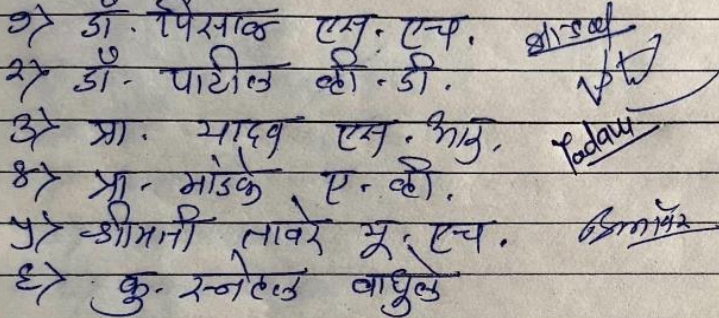 १> डॉ. पिसाळ एस. एच.
२> डॉ. पाटील व्ही. डी.
३> प्रा. यादव एस. आर. Yadav
४> प्रा. मोडके ए. व्ही.
५> श्रीमती तावरे यू. एच.
६> कु. स्नेहल वाघुले